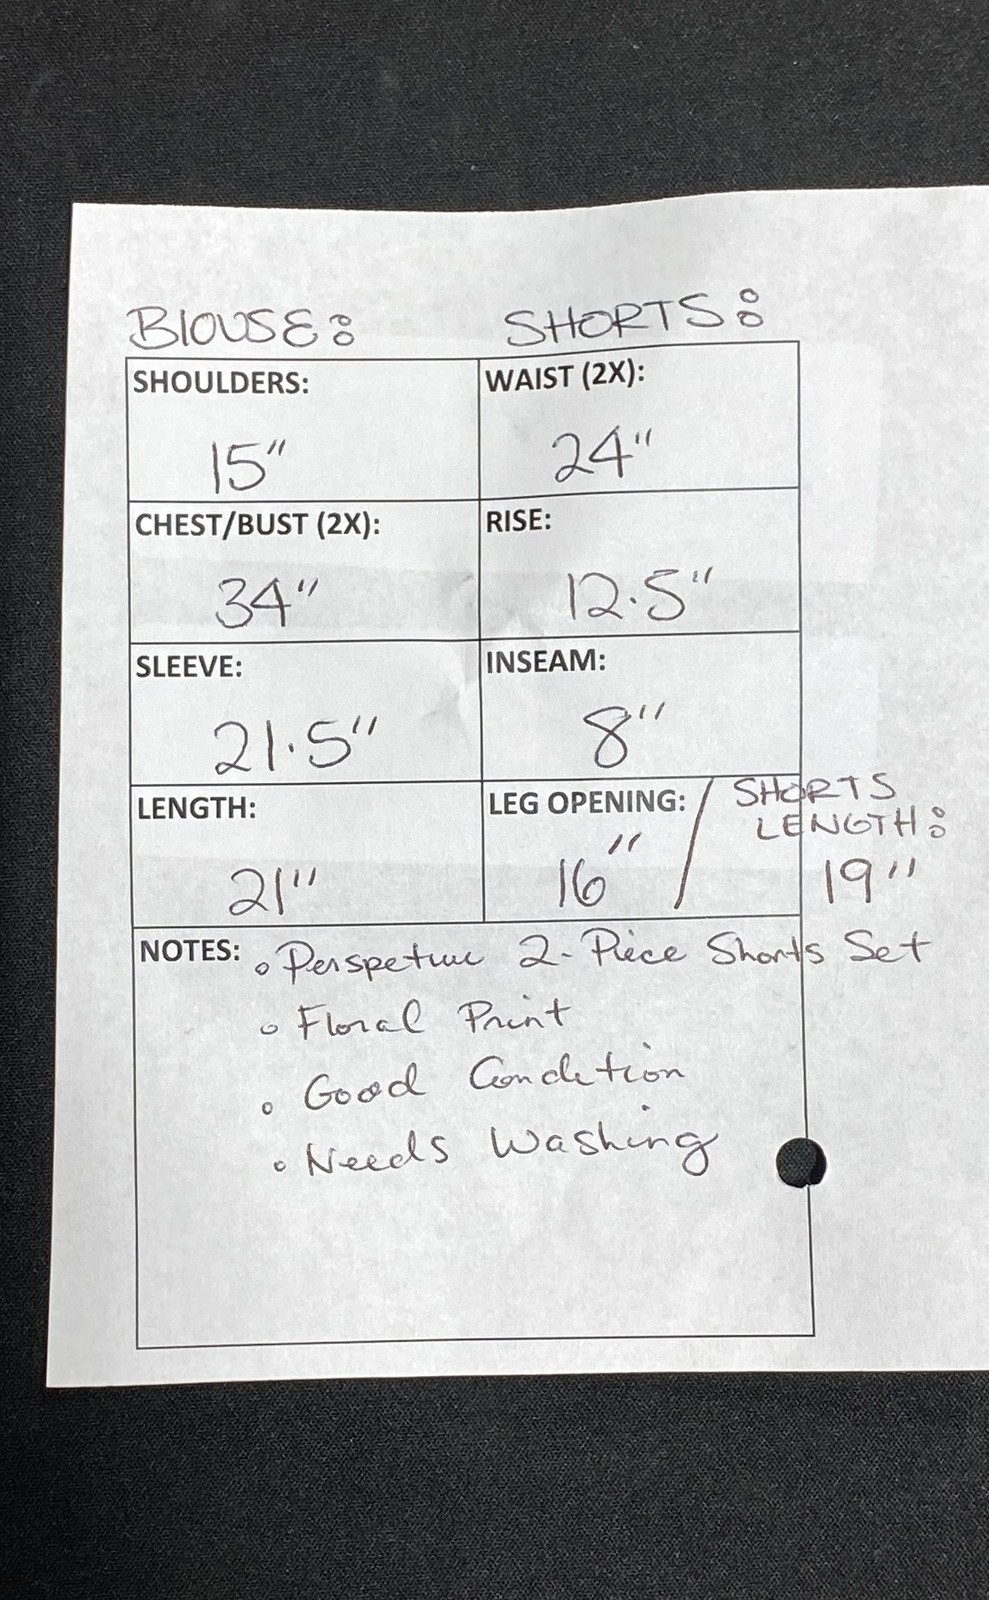 BlOUSE: SHORTS:
SHOULDERS: WAIST (2X):
15" 24"
CHEST/BUST (2X): RISE:
34" 12.5"
SLEEVE: INSEAM:
21.5" 8"
LENGTH: LEG OPENING: / SHORTS LENGTH:
21" 16" 19"
NOTES: • Perspetive 2-Piece Shorts Set
• Floral Print
• Good Condition
• Needs Washing